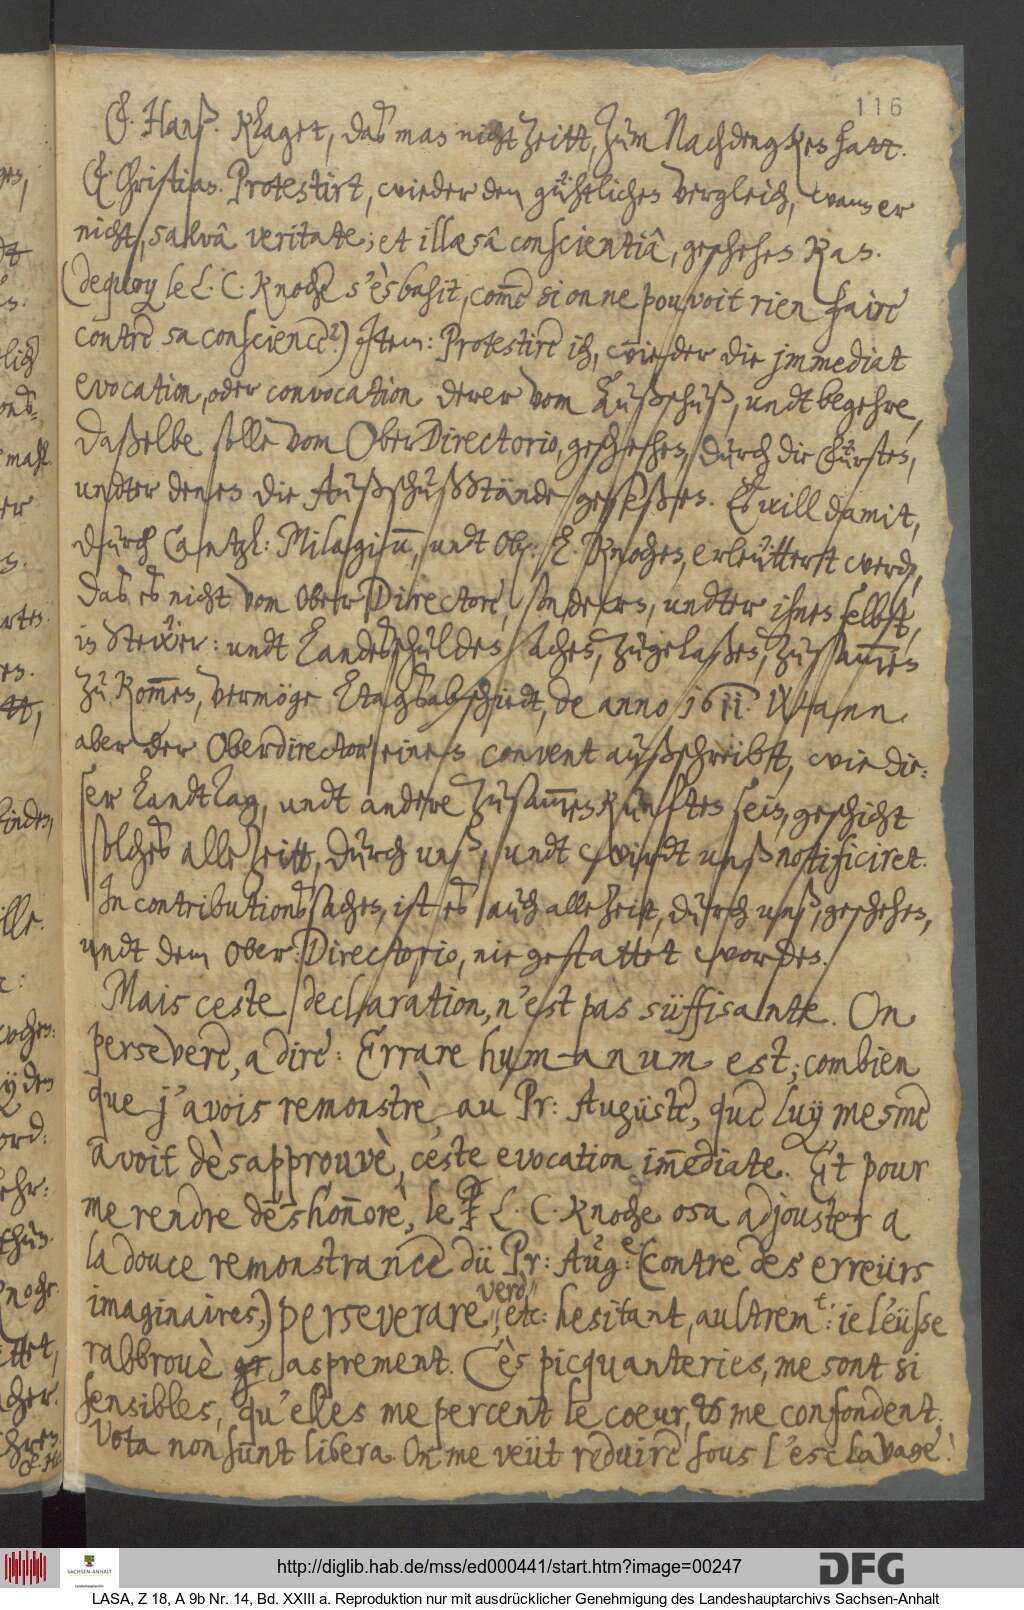 116
F. Hanß. Klaget, das man nicht Zeitt, Zum Nachdengken hatt.
F. Christian. Protestirt, wieder den gühtlichen Vergleich, wann er
nicht, salvâ veritate; et illæsâ conscientiâ, geschehen kan.
(dequoy le L. C. Knoche s'èsbahit, com̄e si on ne pouvoit rien faire
contre sa conscience?) Item: Protestire ich, wieder die jmmediat
evocation, oder convocation derer vom Außschuß, undt begehre,
daßelbe solle vom OberDirectorio, geschehen, durch die Fürsten,
undter denen die AußschußStände geseßen. Er will damit,
durch Cantzl: Milagium̄, undt Ob: E. Knochen, erleüttertt werd,
das es nicht vom Ober Directore, sondern, undter ihnen selbst,
in Stewer: undt Landesschulden sachen, zugelaßen, zusam̄en
zu kom̄en, vermöge Ltagsabschiedt, de anno 1611. Wann
aber der Oberdirector einen convent außschreibtt, wie die:
ser Landtag, undt andere Zusam̄enkunften sein, geschicht
solches alle Zeitt, durch unß, undt wirdt unß notificiret.
In contributions sachen, ist es auch alle Zeit, durch unß, geschehen,
undt dem Ober: Directorio, nie gestattet worden.
Mais ceste declaration, n'est pas süffisante. On
persevere, a dire: Errare humanum est; combien
que j'avois remonstrè, au Pr: Auguste, que luÿ mesme
avoit dèsapprouvè, ceste evocation im̄ediate. Et pour
me rendre dèshon̄orè, le L. C. Knoche osa adjouster a
la douce remonstrance dü Pr: Aug:e (contre des erreürs
imaginaires,) perseverare verò, etc: hesitant, aultrem.t: ie l'eüsse
rabbrouè asprement. Cès picquanteries, me sont si
sensibles, qu'elles me percent le coeur, & me confondent.
Vota non sunt libera. On me veüt reduire sous l'esclavage!
http://diglib.hab.de/mss/ed000441/start.htm?image=00247
DFG
SACHSEN-ANHALT
LASA, Z 18, A 9b Nr. 14, Bd. XXIII a. Reproduktion nur mit ausdrücklicher Genehmigung des Landeshauptarchivs Sachsen-Anhalt